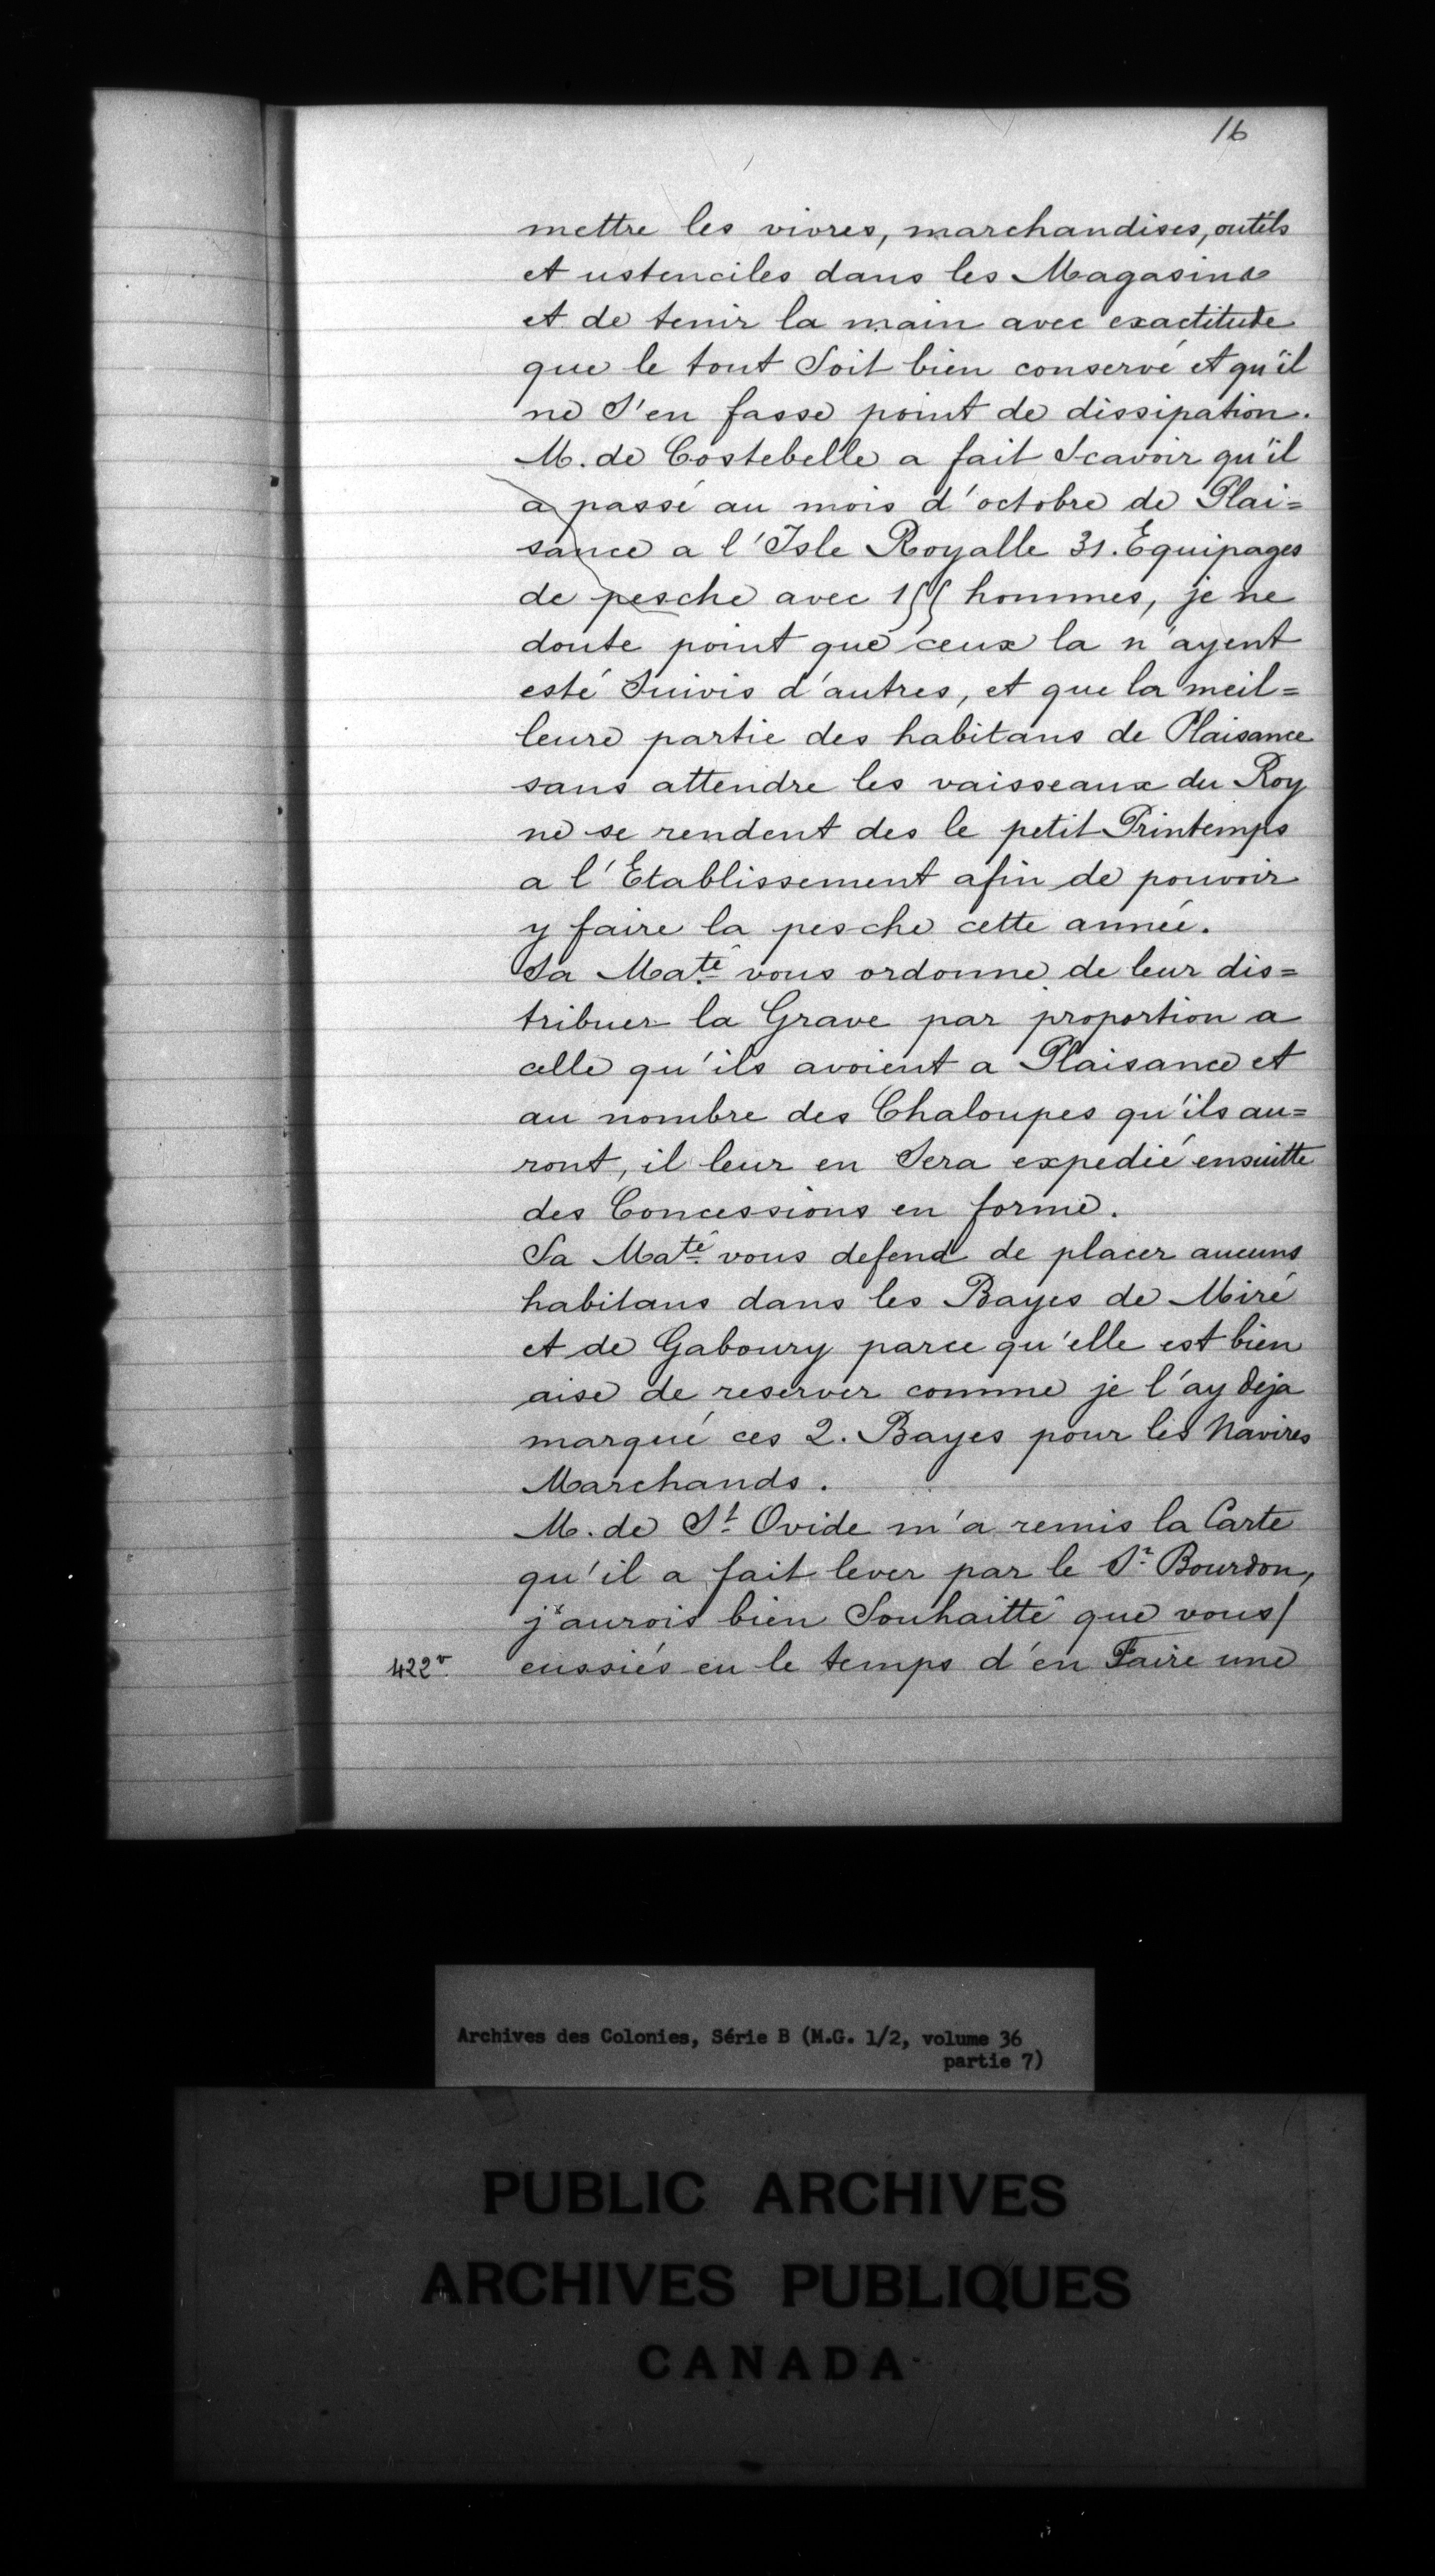 16
mettre les vivres, marchandises, outils
et ustenciles dans les Magasins
et de tenir la main avec exactitude
que le tout Soit bien conservé et qu'il
ne S'en fasse point de dissipation.
M. de Costebelle a fait Scavoir qu'il
a passé au mois d'octobre de Plai=
sance a l'Isle Royalle 31. Equipages
de pesche avec 155 hommes, je ne
doute point que ceux la n'ayent
esté Suivis d'autres, et que la meil=
leure partie des habitans de Plaisance
sans attendre les vaisseaux du Roy
ne se rendent des le petit Printemps
a l'Etablissement afin de pouvoir
y faire la pesche cette année.
Sa Maté vous ordonne de leur dis=
tribuer la Grave par proportion a
celle qu'ils avoient a Plaisance et
au nombre des Chaloupes qu'ils au=
ront, il leur en Sera expedié ensuitte
des Concessions en forme.
Sa Maté vous defend de placer aucuns
habitans dans les Bayes de Miré
et de Gaboury parce qu'elle est bien
aise de reserver comme je l'ay deja
marqué ces 2. Bayes pour les Navires
Marchands.
M. de St Ovide m'a remis la Carte
qu'il a fait lever par le Sr Bourdon,
j'aurois bien Souhaitté que vous/
422v. eussiés eu le temps d'en Faire une
Archives des Colonies, Série B (M.G. 1/2, volume 36
partie 7)
PUBLIC ARCHIVES
ARCHIVES PUBLIQUES
CANADA